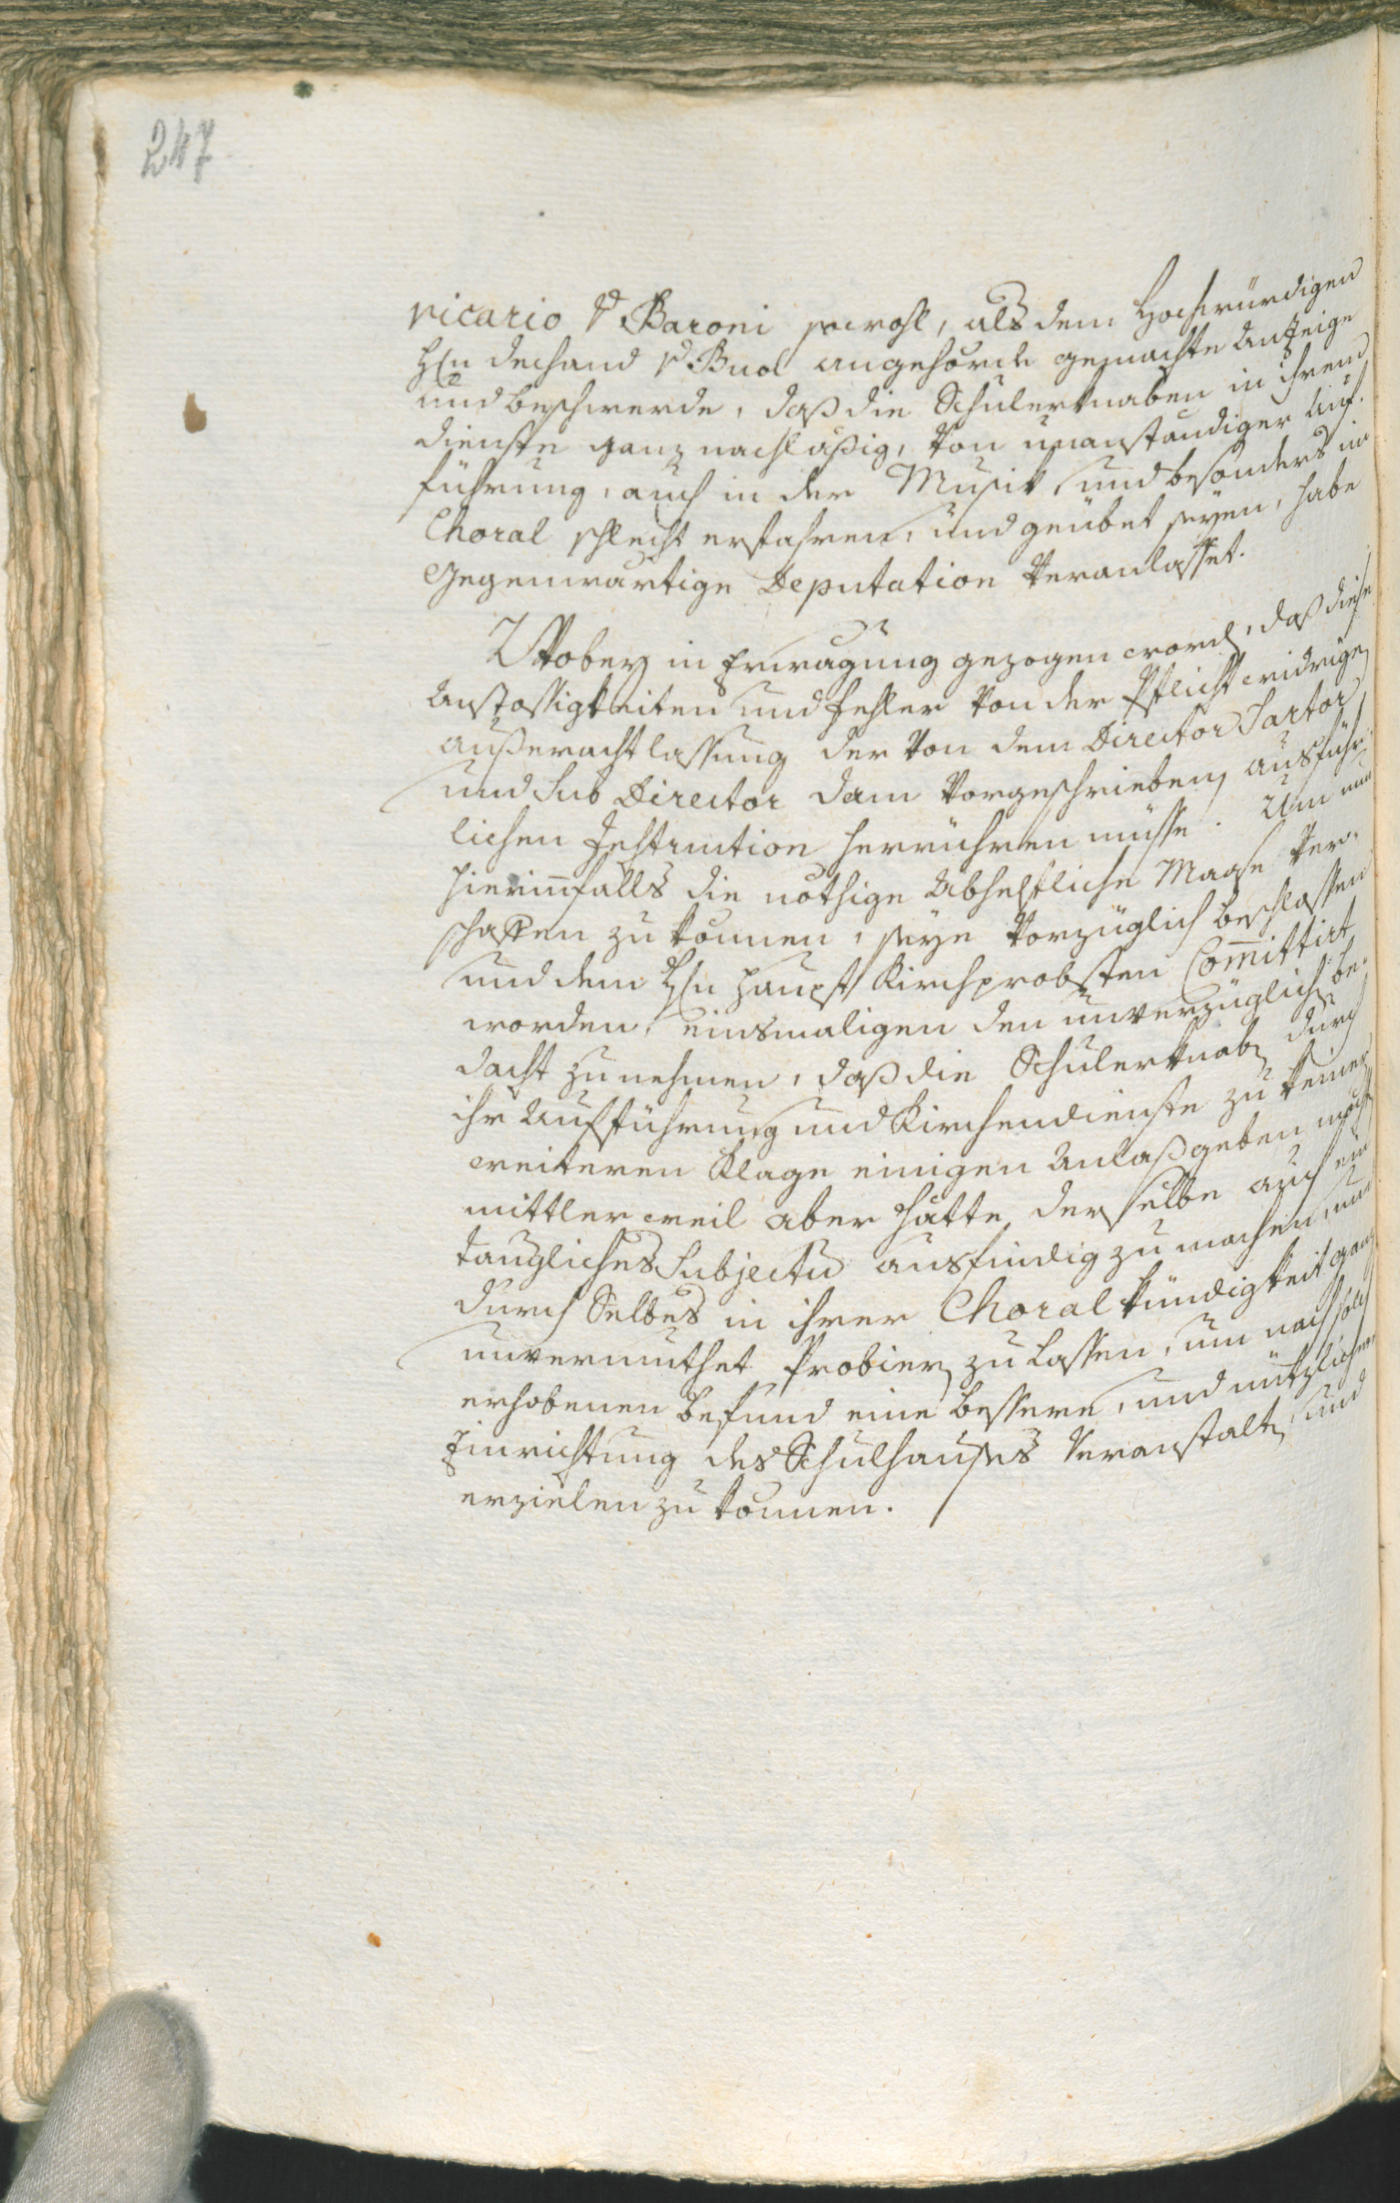 247
vicario v Baroni sowohl, als dem Hochwürdigen
Hn dechand v Buol angehörde gemachte Anzeige
und beschwerde, daß die Schulerknaben in ihrem
dienste ganz nachläßig, von unanständiger Auf-
führung, auch in der Musik, und besonders im
Choral schlecht erfahren, und geübet seyen, habe
Gegenwärtige Deputation veranlasset.
Wobey in Erwägung gezogen word, daß diese
Anstössigkeiten und fehler von der Pflichtwidrigen
außerachtlassung der von dem Director Sartor
und Sub Director dem vorgeschrieben ausführ-
lichen Instruction herrühren müsse. Um nun
hierinnfalls die nöthige Abhelfliche Maase ver-
schaffen zu können, seye vorzüglich beschlossen
und dem Hn Haupt Kirchprobsten Committirt
worden, einsmaligen den unverzüglich be-
dacht zu nehmen, daß die Schulerknaben durch
ihr Aufführung und Kirchendienste zu keiner
weiteren Klage einigen Anlaß geben möch
mittlerweil aber hätte derselbe auch ein
taugliches Subjectu ausfindig zu machen, um
durch Selbes in ihrer Choral kündigkeit ganz
unvermuthet Probieren zu lassen, um nach solch
erhobenen befund eine bessere, und nützlichere
Einrichtung des Schulhauses veranstalten, und
erzielen zu können.